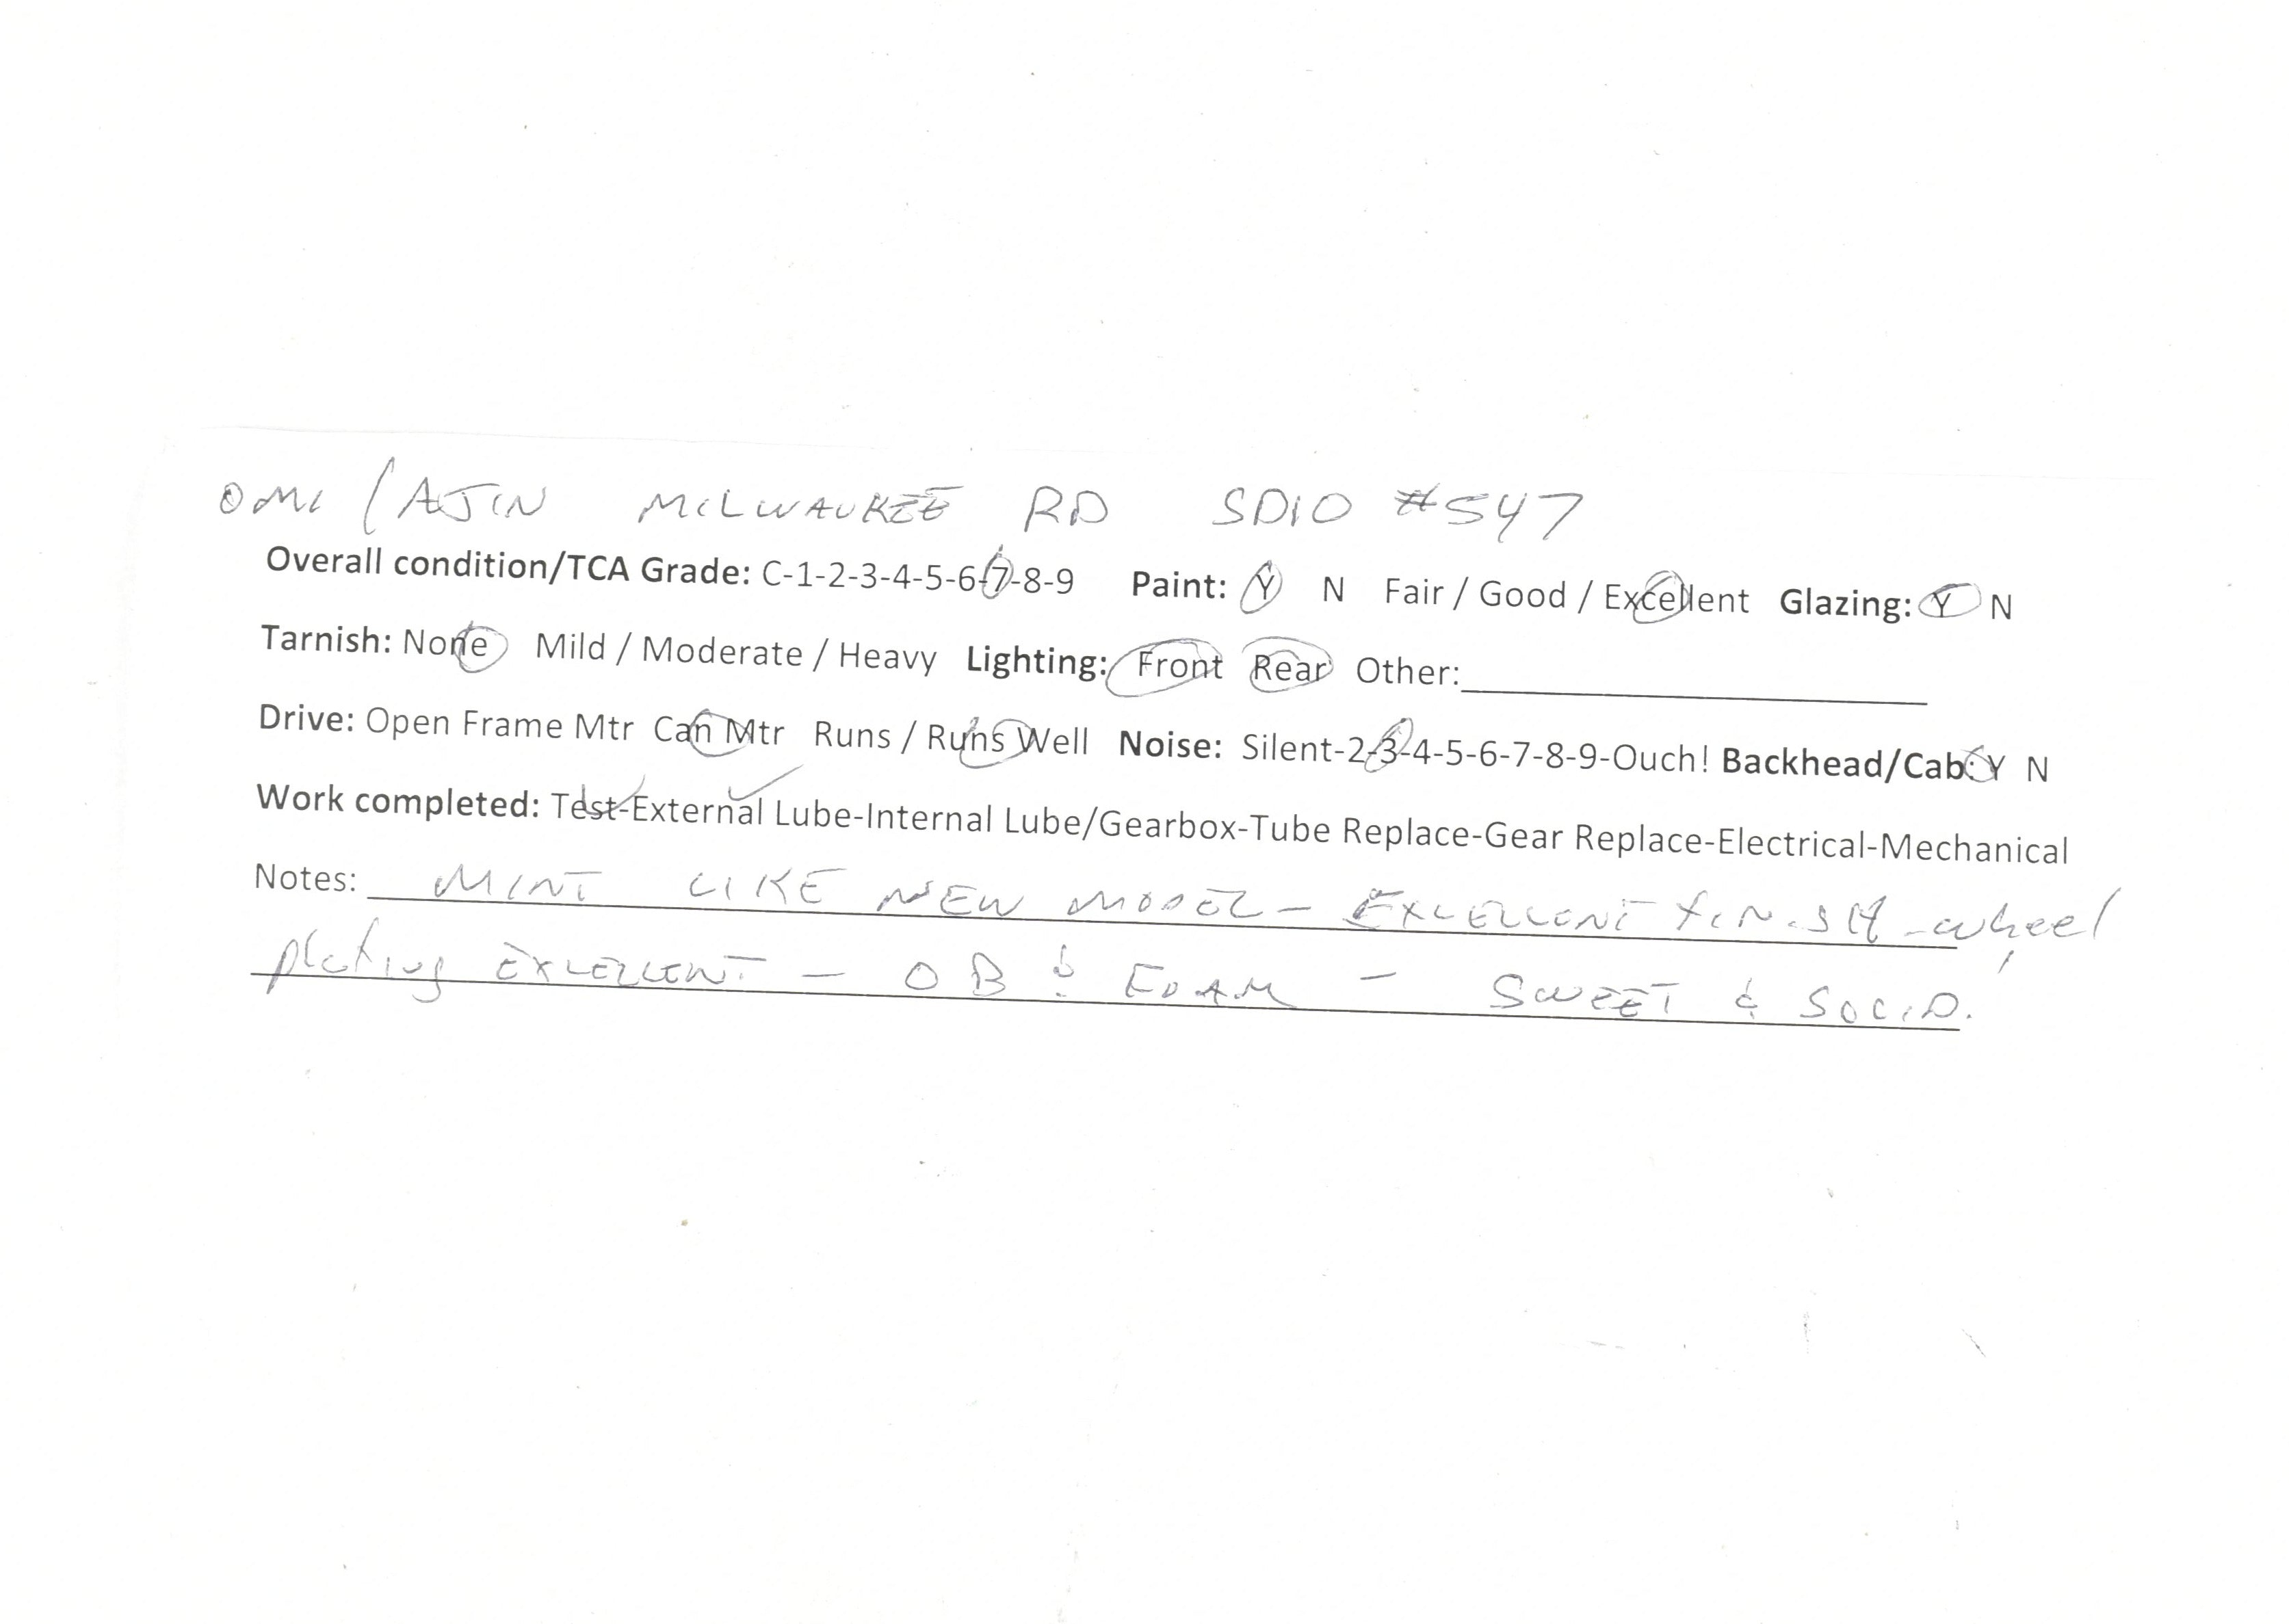 OMI / AJIN MILWAUKEE RD SD10 #547
Overall condition/TCA Grade: C-1-2-3-4-5-6-7-8-9 Paint: Y N Fair / Good / Excellent Glazing: Y N
Tarnish: None Mild / Moderate / Heavy Lighting: Front Rear Other:
Drive: Open Frame Mtr Can Mtr Runs / Runs Well Noise: Silent-2-3-4-5-6-7-8-9-Ouch! Backhead/Cab: Y N
Work completed: Test-External Lube-Internal Lube/Gearbox-Tube Replace-Gear Replace-Electrical-Mechanical
Notes: MINT LIKE NEW MODEL - EXCELLENT FINISH - wheel
plating EXCELLENT - OB & FOAM - SWEET & SOLID.